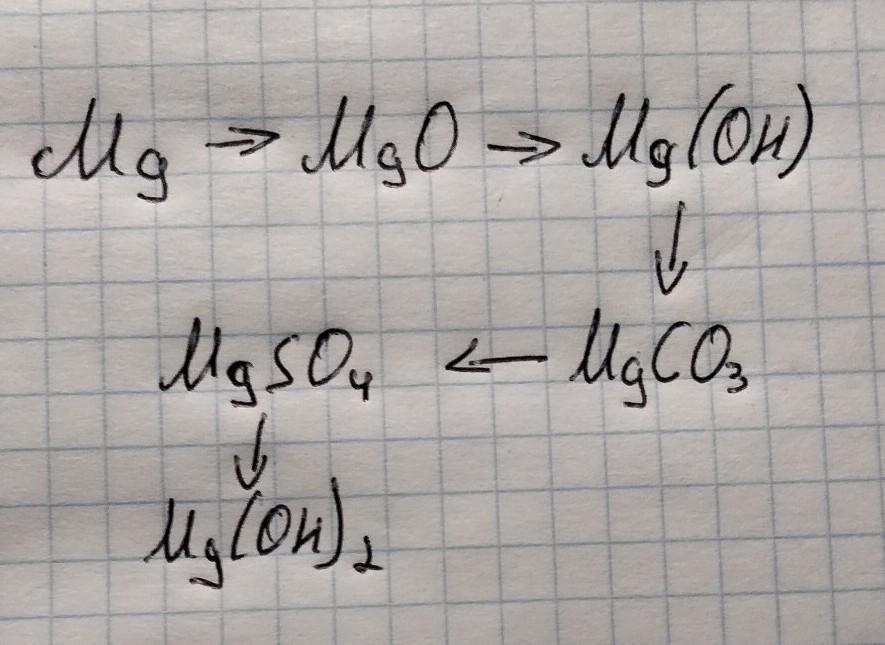 Mg → MgO → Mg(OH)
↓
MgSO₄ ← MgCO₃
↓
Mg(OH)₂